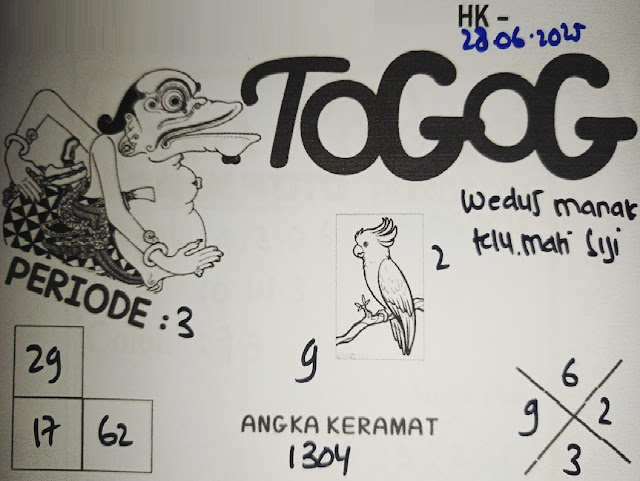 HK -
28.06.2025
TOGOG
wedus manak
telu.mati siji
2
PERIODE : 3
9
29
17 62
ANGKA KERAMAT
1304
6
9 2
3